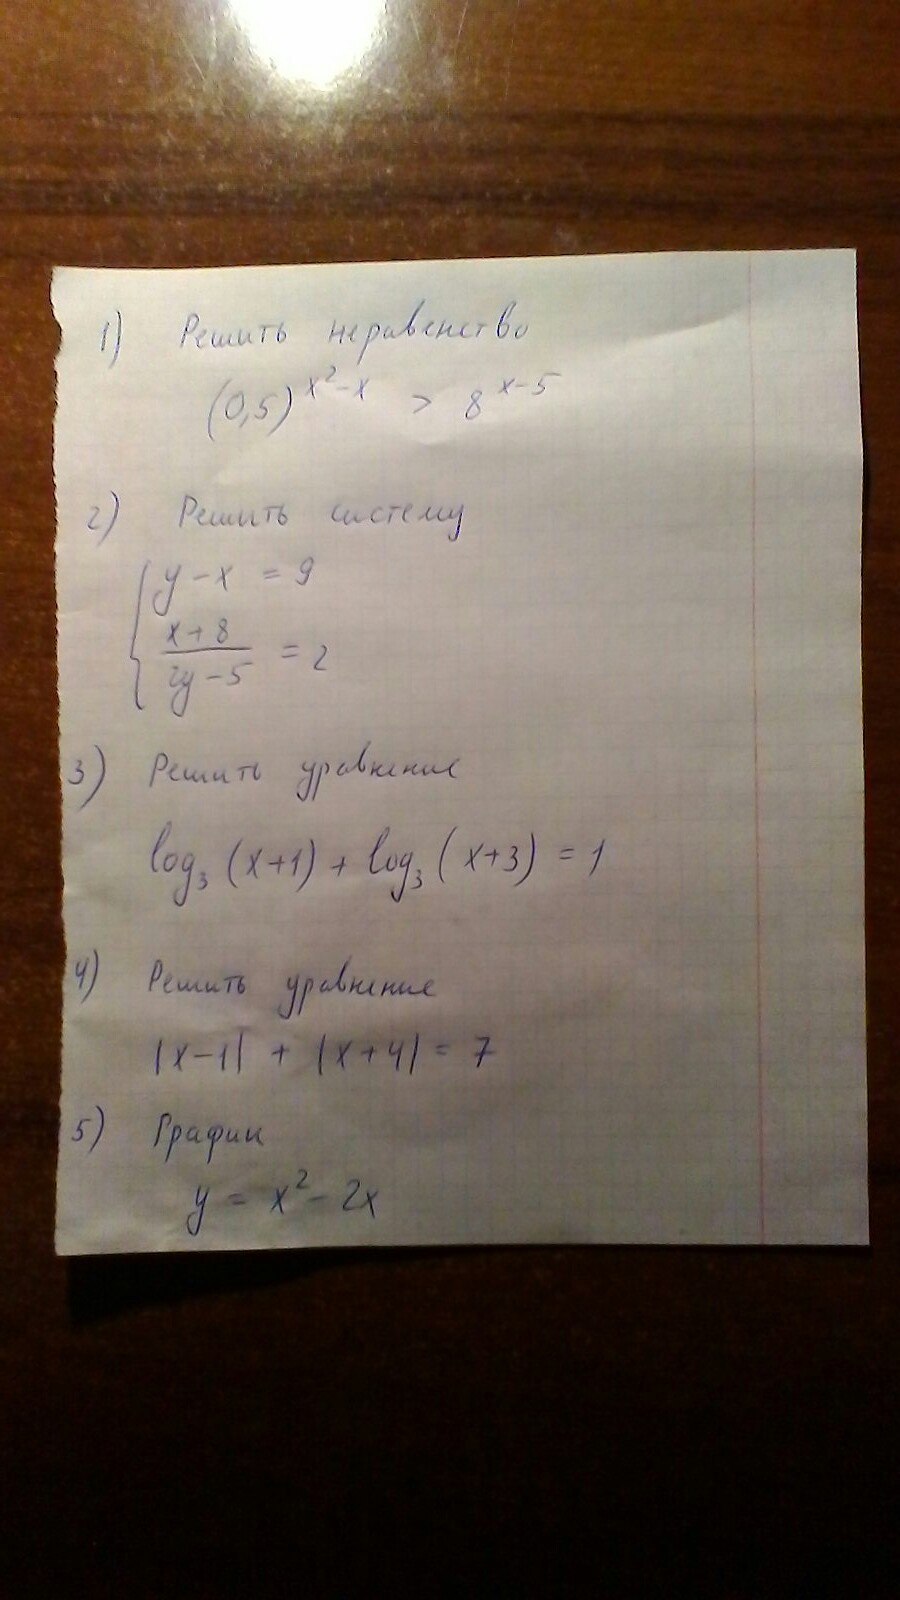 1) Решить неравенство
(0,5)^(x²-x) > 8^(x-5)
2) Решить систему
{ y-x = 9
(x+8)/(2y-5) = 2
3) Решить уравнение
log₃(x+1) + log₃(x+3) = 1
4) Решить уравнение
|x-1| + |x+4| = 7
5) График
y = x² - 2x